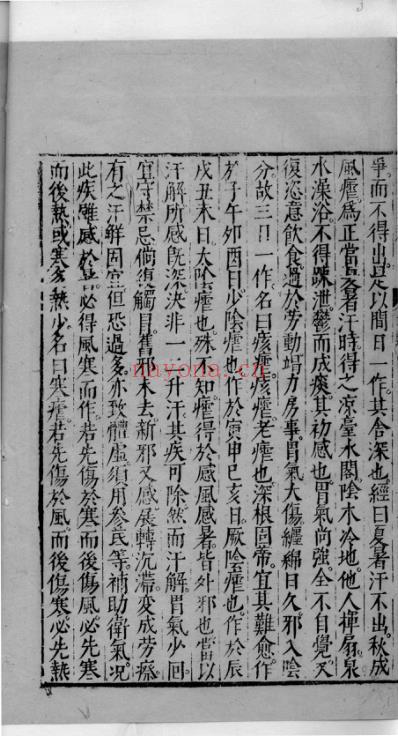 爭而不得出是以間日一作其舍深也經曰夏暑汗不出秋成
風瘧爲正當暑著汗時得之凉臺水閣陰木冷地他人揮扇泉
水澡浴不得踈泄鬱而成痰其初感也胃氣尚强全不自覺又
復恣意飲食過於勞動竭力房事胃氣大傷纏綿日久邪入陰
分故三日一作名曰痎瘧痎瘧老瘧也深根固蒂宜其難愈作
於子午夘酉日少陰瘧也作於寅申巳亥日厥陰瘧也作於辰
戌丑未日太陰瘧也殊不知瘧得於感風感暑皆外邪也當以
汗解所感旣深決非一二升汗其疾可除然而汗解胃氣少回
宜守禁忌倘復觸冐舊邪未去新邪又感展轉沉滯變成勞瘵
有之汗解固宜但恐過多亦致體虛須用參芪等補助衛氣况
此疾雖感於必得風寒而作若先傷於寒而後傷風必先寒
而後熱或寒多熱少名曰寒瘧若先傷於風而後傷寒必先熱
nayona.cn